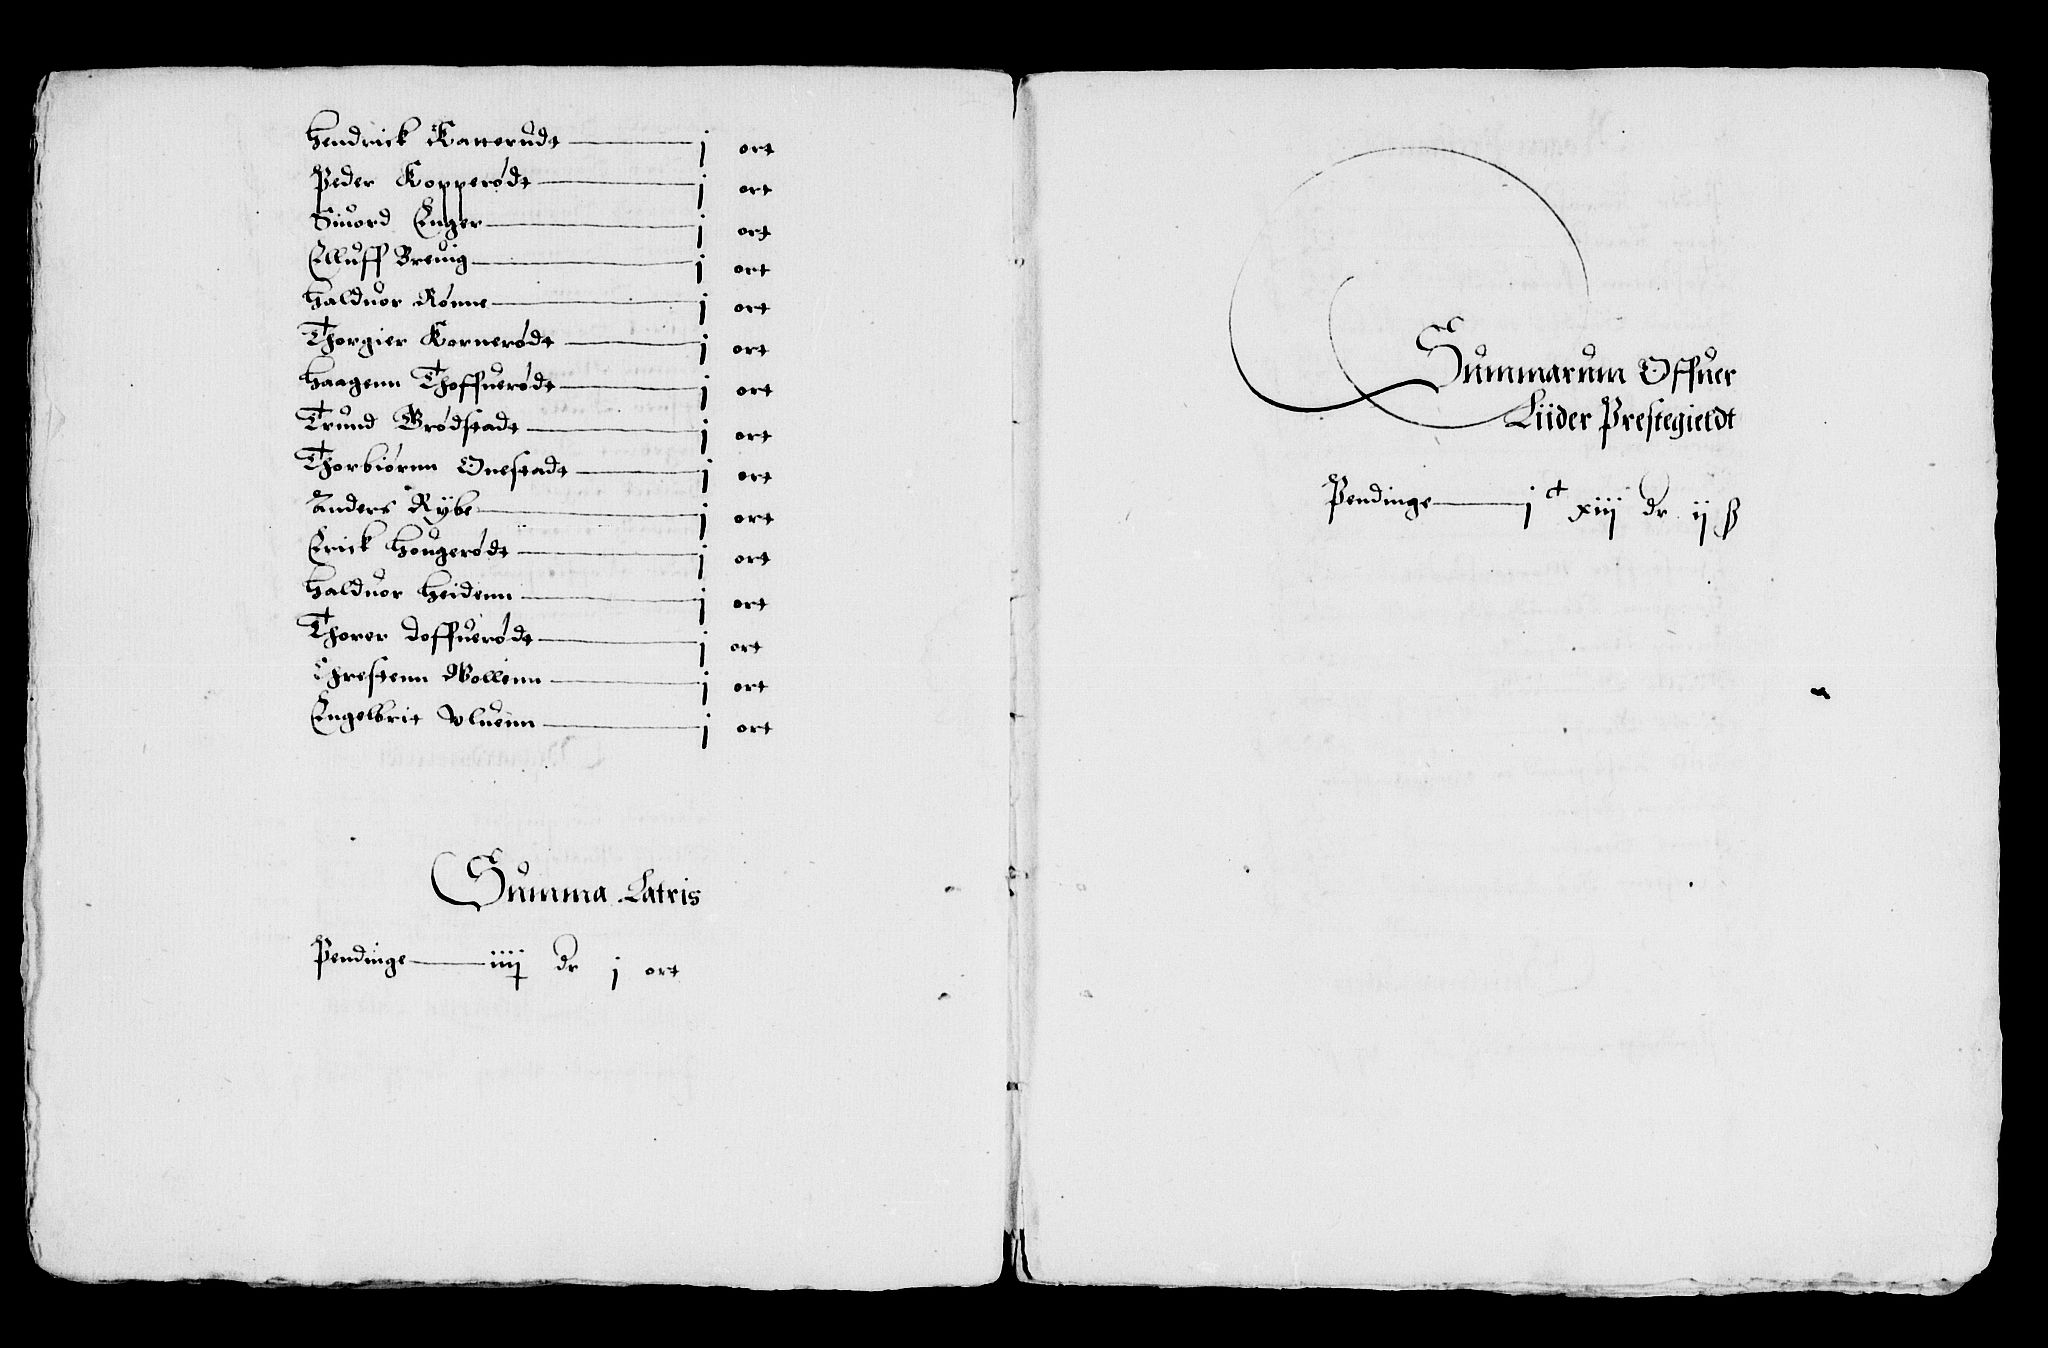 Hendrick Katterudt j ort
Peder Kopperødt j ort
Siuord Enger j ort
Olluff Breuig j ort
Halduor Rønne j ort
Thorgier Kornerødt j ort
Haagenn Thoffuerødt j ort
Trund Brødstadt j ort
Thorbiørnn Onestadt j ort
Anders Rÿbe j ort
Erick Hougerødt j ort
Halduor Heidenn j ort
Thorer Doffuerødt j ort
Chrestenn Wollenn j ort
Engelbrit Vluenn j ort
Summa Latris
Pendinge iiij dr j ort
Summarum Offuer
Liider Prestegieldt
Pendinge j c xiij dr ij ß